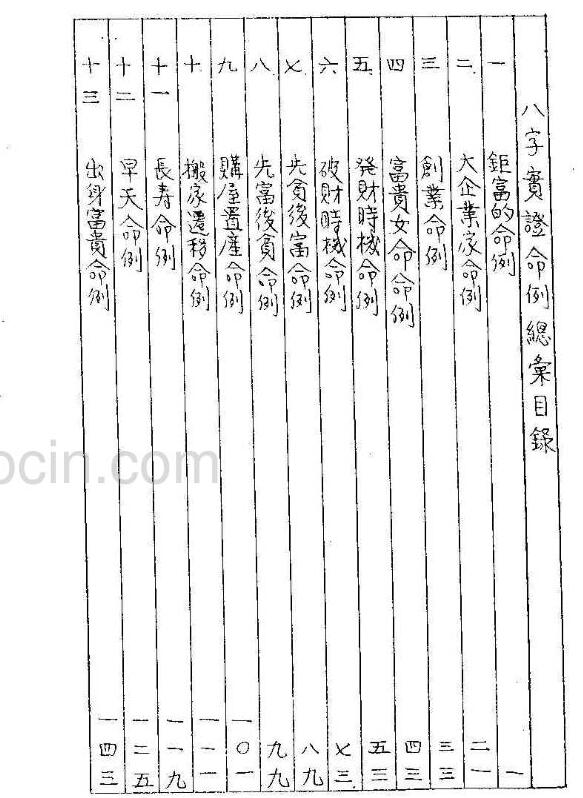 八字實證命例總彙目錄
一 鉅富的命例 一
二 大企業家命例 二一
三 創業命例 三三
四 富貴女命命例 四三
五 発財時機命例 五三
六 破財時機命例 七三
七 先貧後富命例 八九
八 先富後貧命例 九九
九 購屋置産命例 一〇一
十 搬家遷移命例 一一一
十一 長寿命例 一一九
十二 早夭命例 一二五
十三 出身富貴命例 一四三
ocin.com